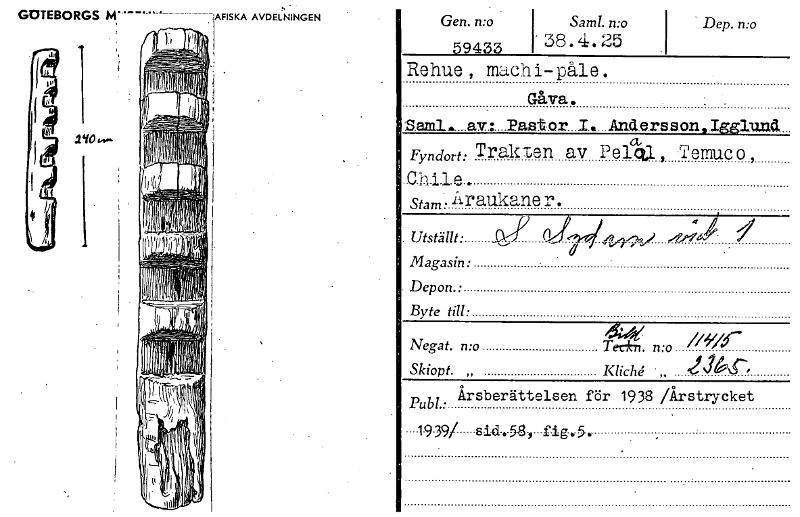 GÖTEBORGS MUSEUM AFISKA AVDELNINGEN
240 cm
Gen. n:o Saml. n:o Dep. n:o
59433 38.4.25
Rehue, machi-påle.
Gåva.
Saml. av: Pastor I. Andersson,Igglund
Fyndort: Trakten av Pelal, Temuco,
Chile.
Stam: Araukaner.
Utställt: S Sydam 1
Magasin:
Depon.:
Byte till:
Bild
Negat. n:o Teckn. n:o 11415
Skiopt. „ Kliché „ 2365.
Publ.: Årsberättelsen för 1938 /Årstrycket
1939/ sid.58, fig.5.